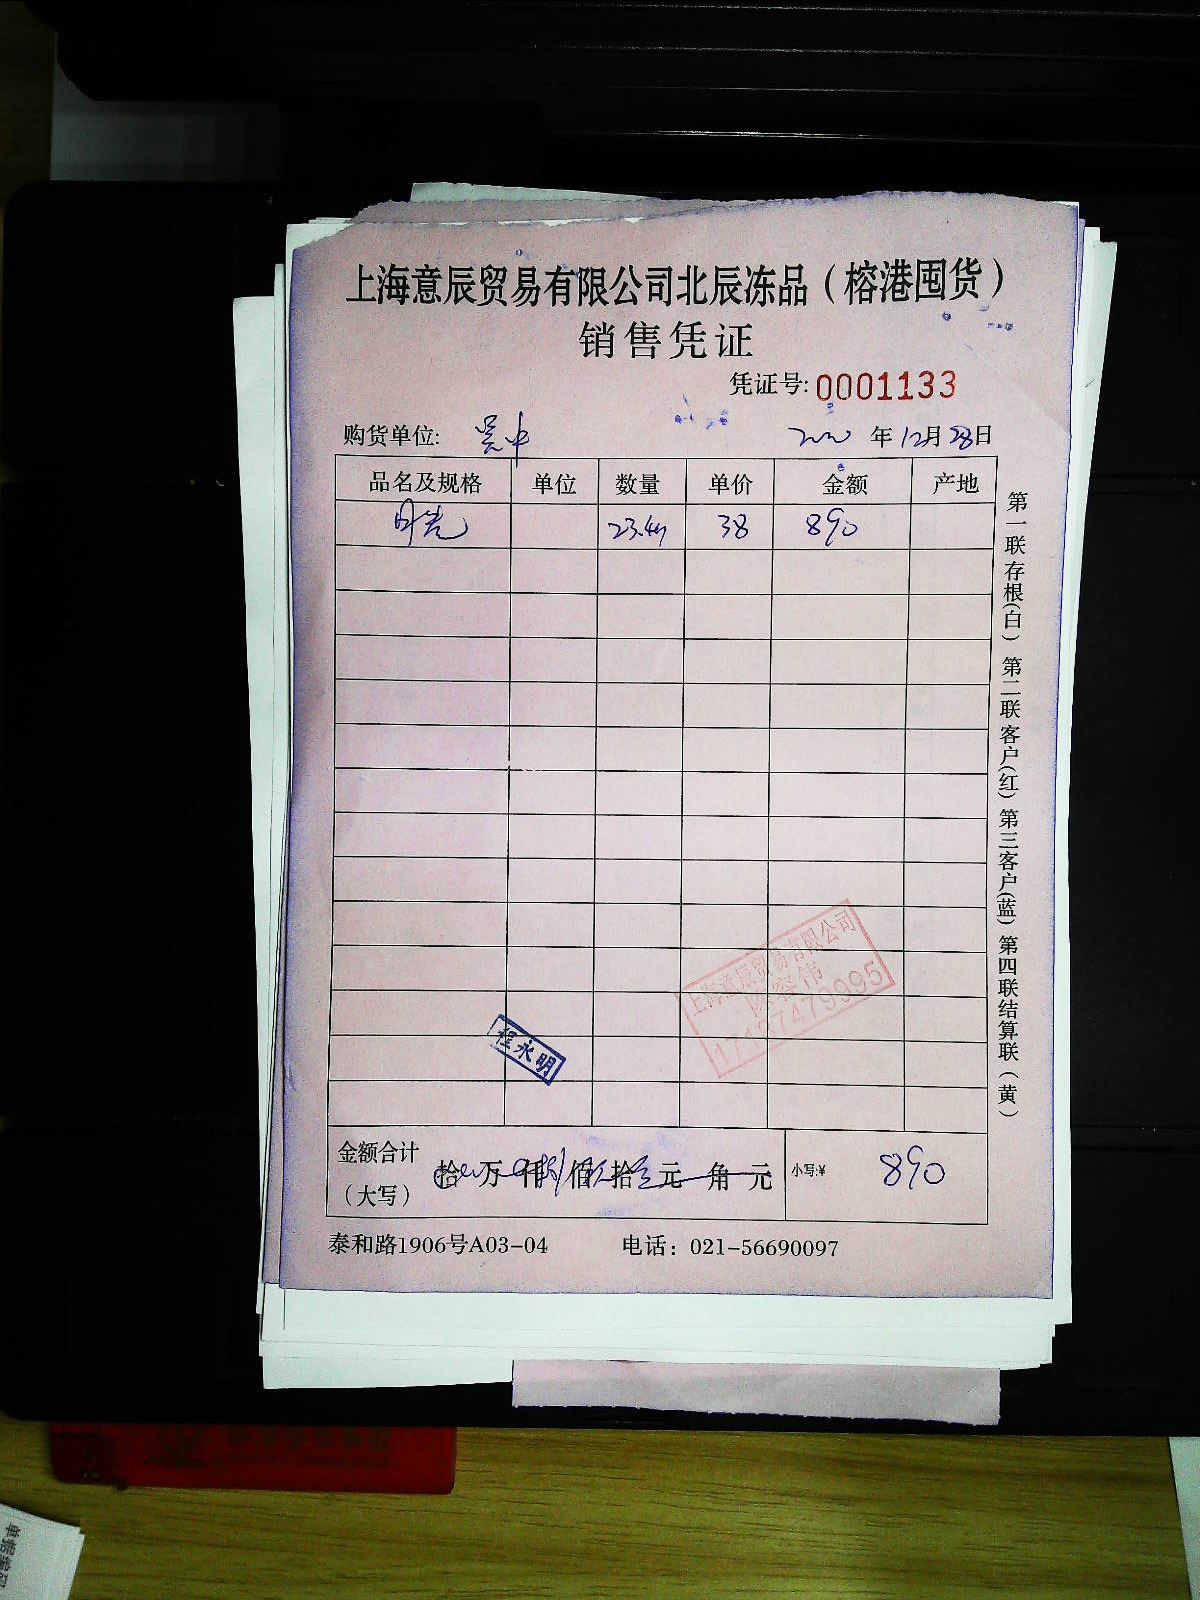 上海意辰贸易有限公司北辰冻品（榕港囤货）
销售凭证
凭证号: 0001133
购货单位: 吴中 2020 年 12月 28日
品名及规格 单位 数量 单价 金额 产地
38 890
第一联存根(白) 第二联客户(红) 第三客户(蓝) 第四联结算联(黄)
上海意辰贸易有限公司
程永明
金额合计
（大写）
拾 万 仟 佰 拾 元 角 元 小写:¥ 890
泰和路1906号A03-04 电话：021-56690097